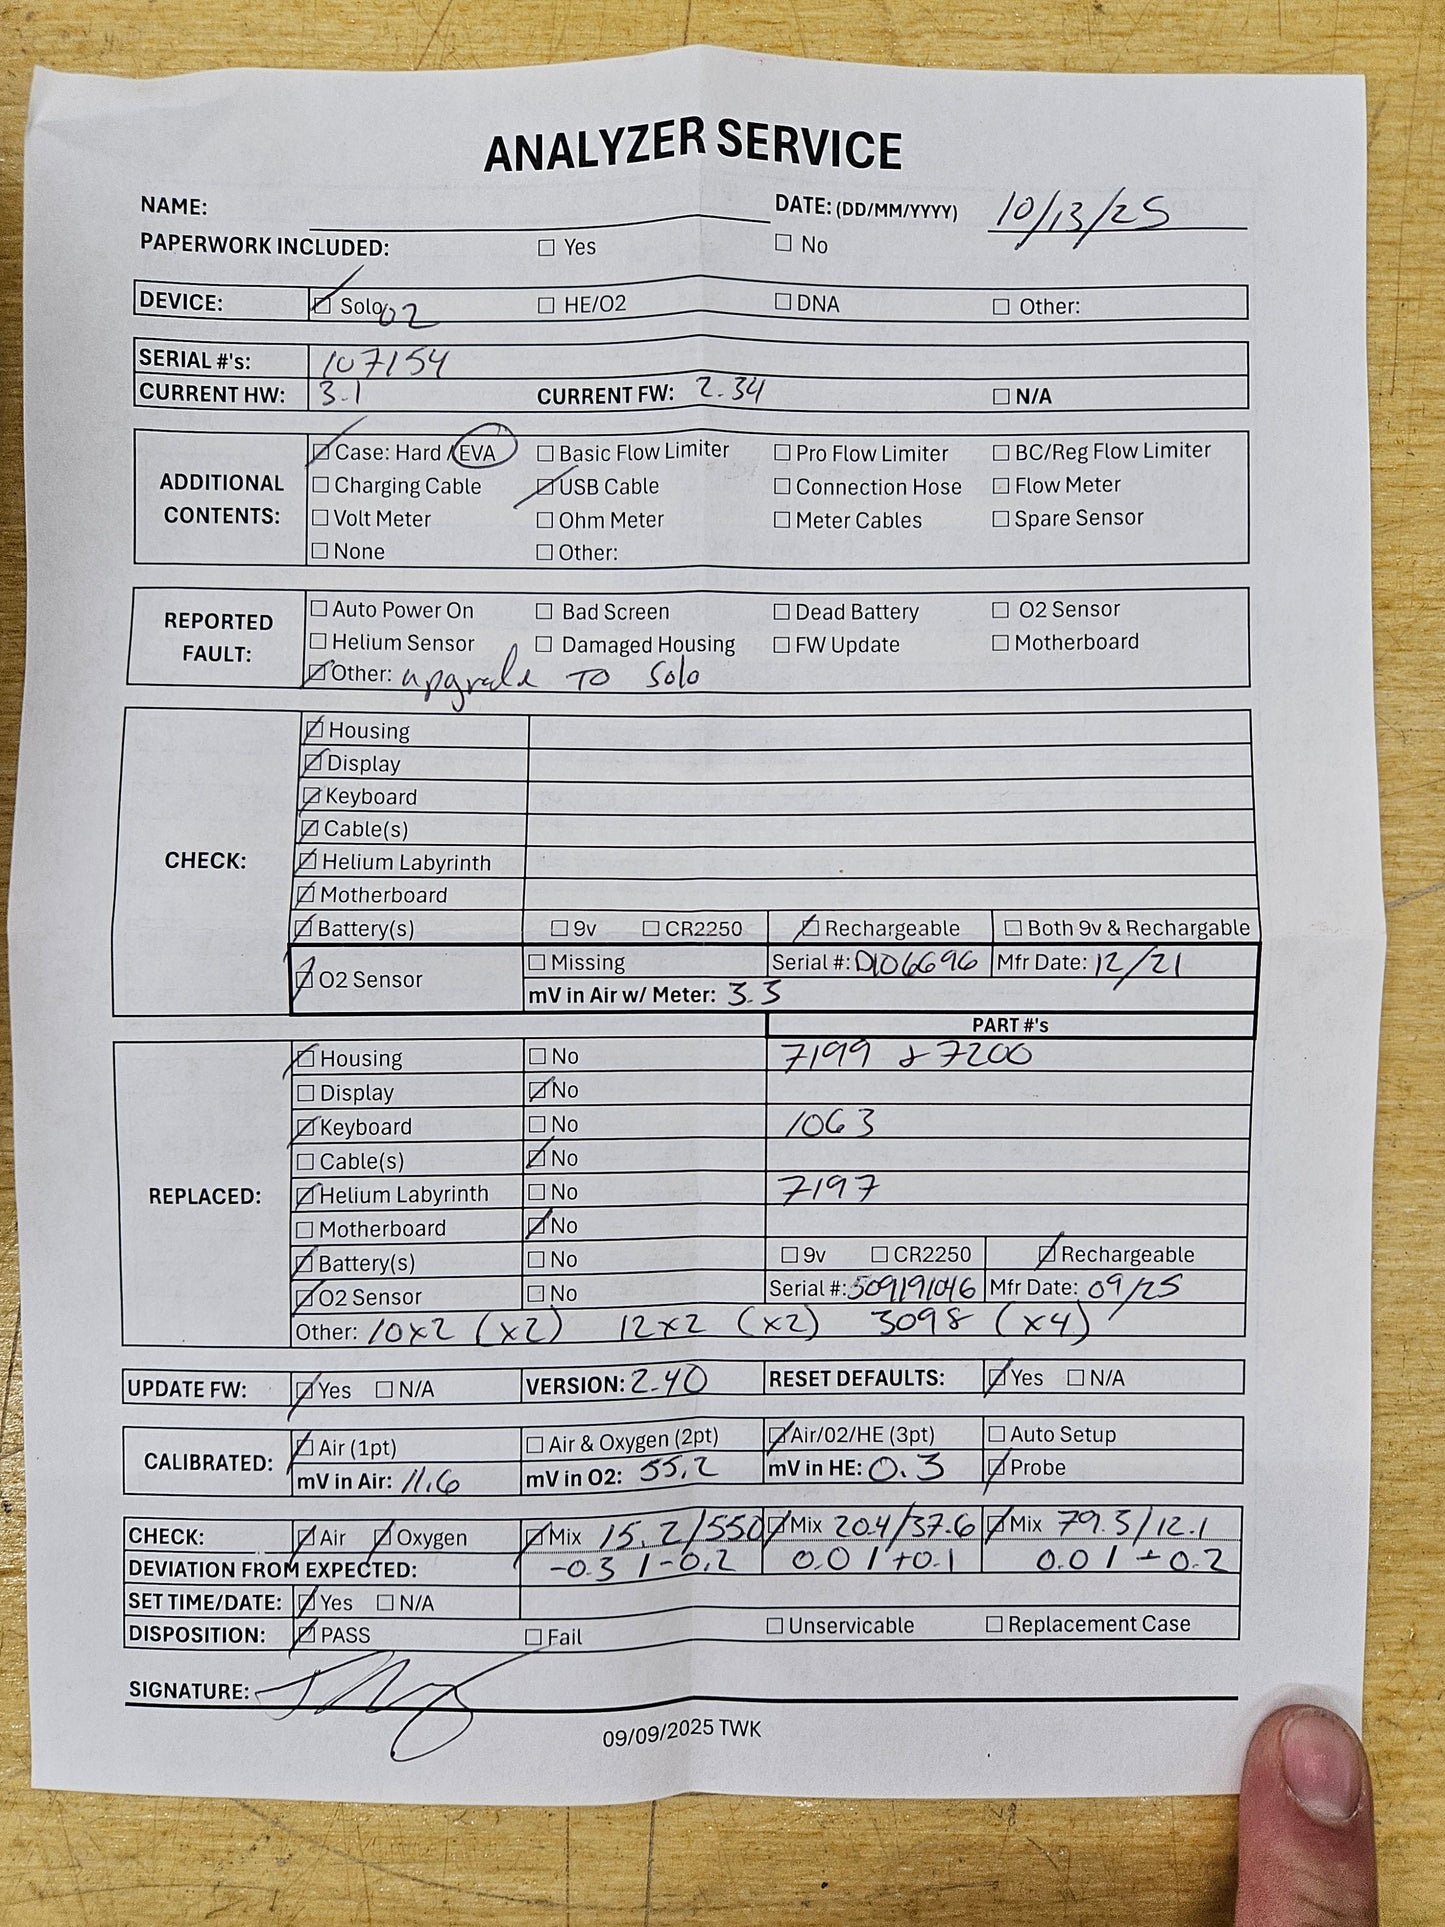 ANALYZER SERVICE
NAME: DATE: (DD/MM/YYYY) 10/13/25
PAPERWORK INCLUDED: ☐ Yes ☐ No
DEVICE: ☑ Solo O2 ☐ HE/O2 ☐ DNA ☐ Other:
SERIAL #'s: 107154
CURRENT HW: 3.1 CURRENT FW: 2.34 ☐ N/A
ADDITIONAL CONTENTS: ☑ Case: Hard / EVA ☐ Basic Flow Limiter ☐ Pro Flow Limiter ☐ BC/Reg Flow Limiter
☐ Charging Cable ☑ USB Cable ☐ Connection Hose ☐ Flow Meter
☐ Volt Meter ☐ Ohm Meter ☐ Meter Cables ☐ Spare Sensor
☐ None ☐ Other:
REPORTED FAULT: ☐ Auto Power On ☐ Bad Screen ☐ Dead Battery ☐ O2 Sensor
☐ Helium Sensor ☐ Damaged Housing ☐ FW Update ☐ Motherboard
☑ Other: upgrade TO Solo
CHECK: ☑ Housing
☑ Display
☑ Keyboard
☑ Cable(s)
☑ Helium Labyrinth
☑ Motherboard
☑ Battery(s) ☐ 9v ☐ CR2250 ☑ Rechargeable ☐ Both 9v & Rechargable
☑ O2 Sensor ☐ Missing Serial #: D106696 Mfr Date: 12/21
mV in Air w/ Meter: 3.3
PART #'s
REPLACED: ☑ Housing ☐ No 7199 & 7200
☐ Display ☑ No
☑ Keyboard ☐ No 1063
☐ Cable(s) ☑ No
☑ Helium Labyrinth ☐ No 7197
☐ Motherboard ☑ No
☑ Battery(s) ☐ No ☐ 9v ☐ CR2250 ☑ Rechargeable
☑ O2 Sensor ☐ No Serial #: 509191046 Mfr Date: 09/25
Other: 10x2 (x2) 12x2 (x2) 3098 (x4)
UPDATE FW: ☑ Yes ☐ N/A VERSION: 2.40 RESET DEFAULTS: ☑ Yes ☐ N/A
CALIBRATED: ☑ Air (1pt) ☐ Air & Oxygen (2pt) ☑ Air/02/HE (3pt) ☐ Auto Setup
mV in Air: 11.6 mV in O2: 55.2 mV in HE: 0.3 ☑ Probe
CHECK: ☑ Air ☑ Oxygen ☑ Mix 15.2/550 ☑ Mix 20.4/37.6 ☑ Mix 79.3/12.1
DEVIATION FROM EXPECTED: -0.3 / -0.2 0.0 / +0.1 0.0 / +0.2
SET TIME/DATE: ☑ Yes ☐ N/A
DISPOSITION: ☑ PASS ☐ Fail ☐ Unservicable ☐ Replacement Case
SIGNATURE:
09/09/2025 TWK